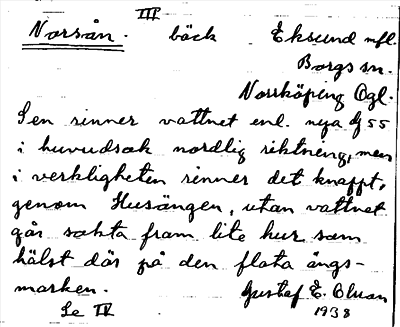 III
Norsån. bäck Eksund mfl.
Borgs sn.
Norrköping Ögl.
Sen rinner vattnet enl. nya 55
i huvudsak nordlig riktning, men
i verkligheten rinner det knappt,
genom Husängen, utan vattnet
går sakta fram lite hur som
hälst där på den flata ängs-
marken. Gustaf E. Bluan
Se IV 1938